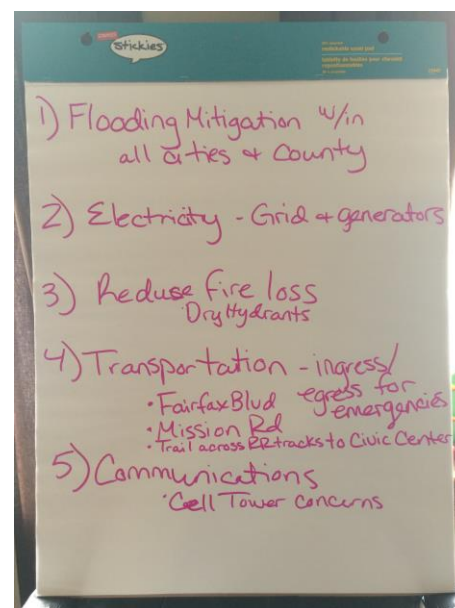 stickies
1) Flooding Mitigation w/in
all cities & County
2) Electricity - Grid & generators
3) Reduse fire loss
Dry Hydrants
4) Transportation - ingress/
egress for
emergencies
• Fairfax Blvd
• Mission Rd
• Trail across RR tracks to Civic Center
5) Communications
• Cell Tower concerns